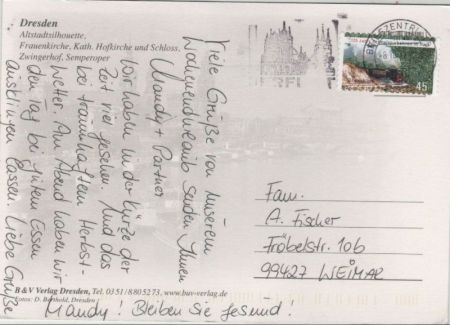 Dresden
Altstadtsilhouette,
Frauenkirche, Kath. Hofkirche und Schloss,
Zwingerhof, Semperoper
Viele Grüße von unserem
Wochenendurlaub senden Ihnen
Mandy + Partner
Wir haben in der Kürze der
Zeit viel gesehen. Und das
bei traumhaftem Herbst-
wetter. Am Abend haben wir
den Tag bei gutem Essen
ausklingen lassen. Liebe Grüße
Mandy! Bleiben Sie gesund!
B & V Verlag Dresden, Tel. 03 51/8 80 52 73, www.buv-verlag.de
Fotos: D. Berthold, Dresden
BRIEFZENTRUM
45
Fam.
A. Fischer
Fröbelstr. 10b
99427 WEIMAR